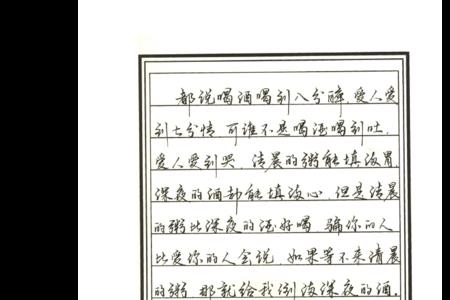 都说喝酒喝到八分醉，爱人爱
到七分情，可谁不是喝酒喝到吐，
爱人爱到哭，清晨的粥能填满胃，
深夜的酒却能填满心，但是清晨
的粥比深夜的酒好喝，骗你的人
比爱你的人会说，如果等不来清晨
的粥，那就给我倒满深夜的酒。